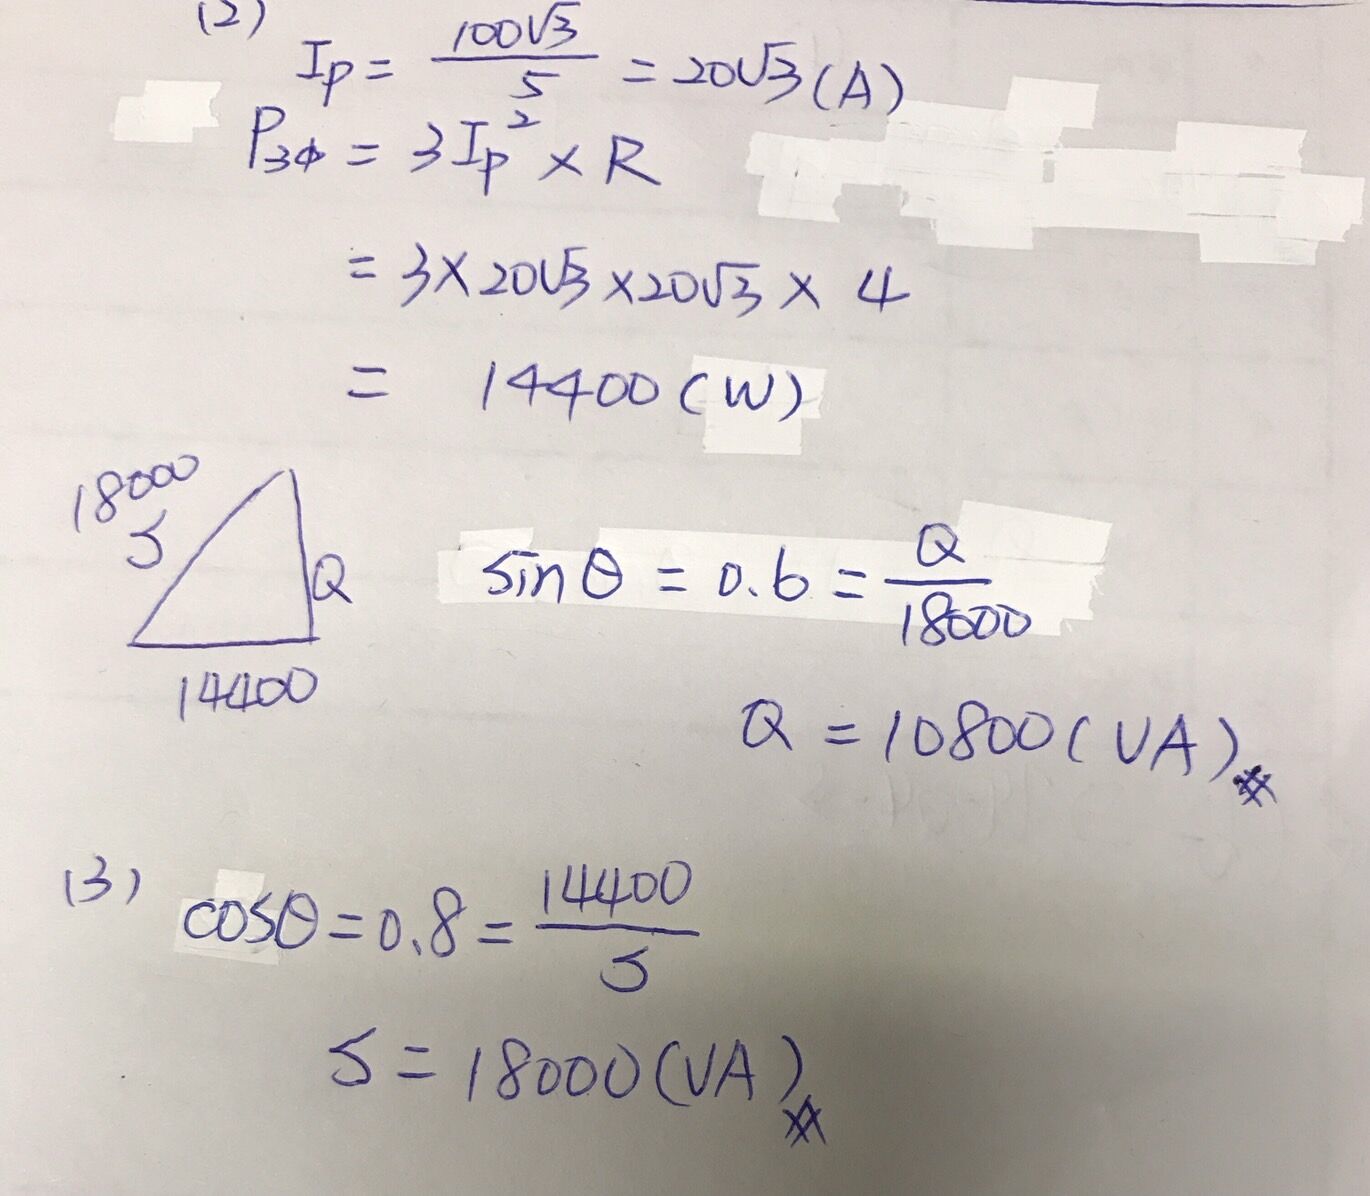 (2)
Ip = 100√3 / 5 = 20√3 (A)
P3Φ = 3Ip² × R
= 3 × 20√3 × 20√3 × 4
= 14400 (W)
18000
S
Q
14400
sinθ = 0.6 = Q / 18000
Q = 10800 (VA) #
(3) cosθ = 0.8 = 14400 / S
S = 18000 (VA) #